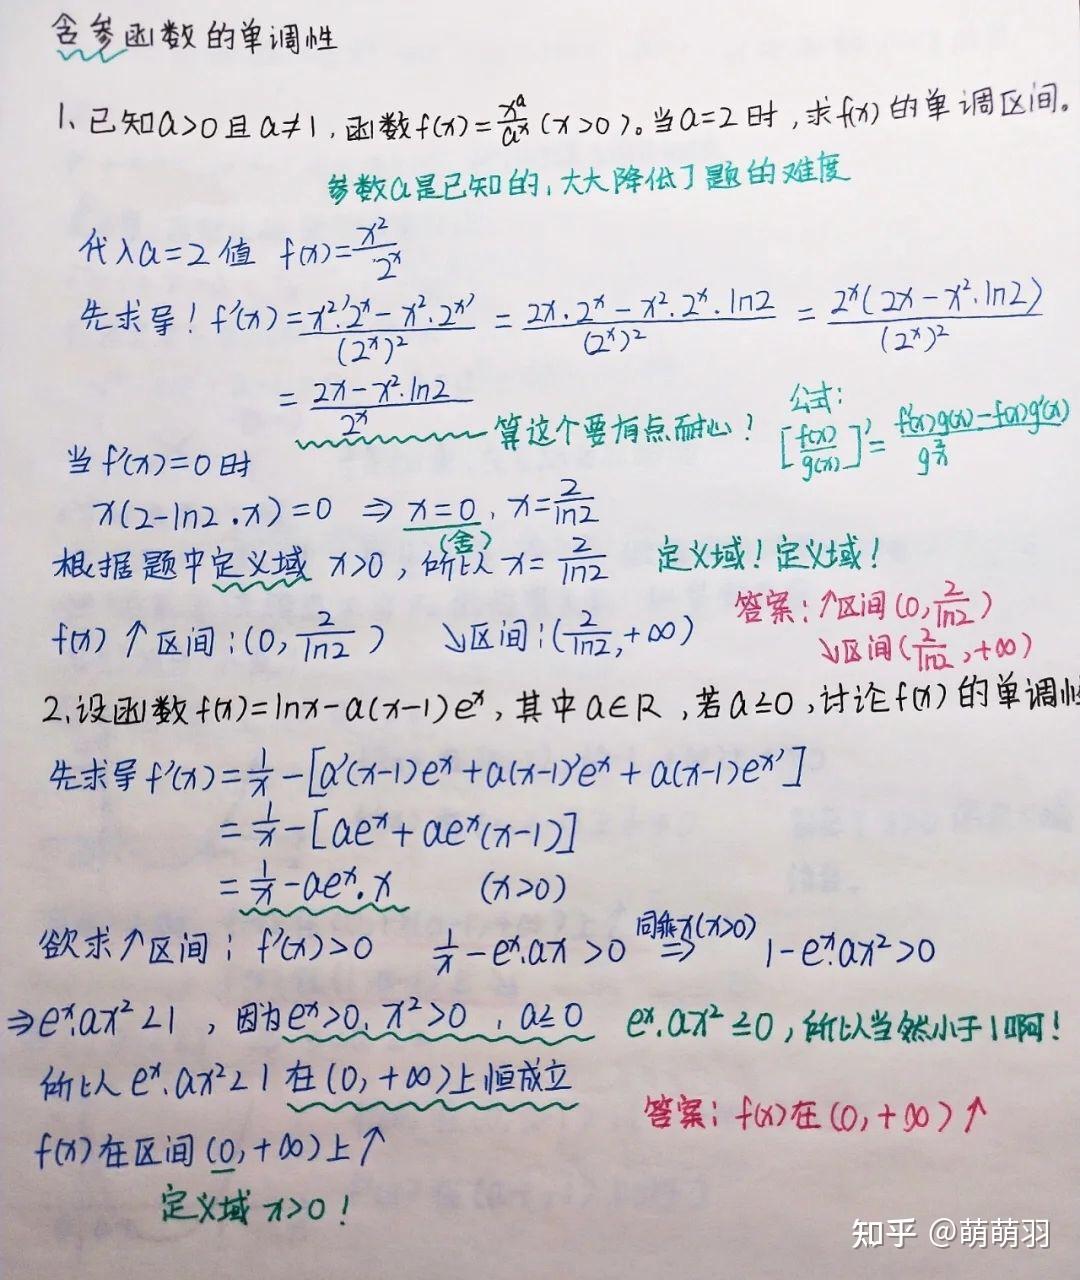 含参函数的单调性
1、已知a>0且a≠1，函数f(x)=x^a/a^x(x>0)。当a=2时，求f(x)的单调区间。
参数a是已知的，大大降低了题的难度
代入a=2值 f(x)=x²/2^x
先求导！f'(x)=(x²'·2^x-x²·2^x')/(2^x)²=(2x·2^x-x²·2^x·ln2)/(2^x)²=2^x(2x-x²·ln2)/(2^x)²
=(2x-x²·ln2)/2^x
算这个要有点耐心！
公式：
[f(x)/g(x)]'=(f'(x)g(x)-f(x)g'(x))/g²(x)
当f'(x)=0时
x(2-ln2·x)=0 ⇒ x=0, x=2/ln2
(舍)
根据题中定义域 x>0，所以x=2/ln2 定义域！定义域！
f(x)↑区间：(0, 2/ln2) ↘区间：(2/ln2, +∞)
答案：↑区间(0, 2/ln2)
↘区间(2/ln2, +∞)
2、设函数f(x)=lnx-a(x-1)e^x，其中a∈R，若a≤0，讨论f(x)的单调性
先求导f'(x)=1/x-[a'(x-1)e^x+a(x-1)'e^x+a(x-1)e^x']
=1/x-[ae^x+ae^x(x-1)]
=1/x-ae^x·x (x>0)
欲求↑区间：f'(x)>0 1/x-e^x·ax>0 同乘x(x>0) ⇒ 1-e^x·ax²>0
⇒e^x·ax²<1，因为e^x>0、x²>0，a≤0 e^x·ax²≤0，所以当然小于1啊！
所以e^x·ax²<1在(0,+∞)上恒成立
答案：f(x)在(0,+∞)↑
f(x)在区间(0,+∞)上↑
定义域x>0！
知乎 @萌萌羽